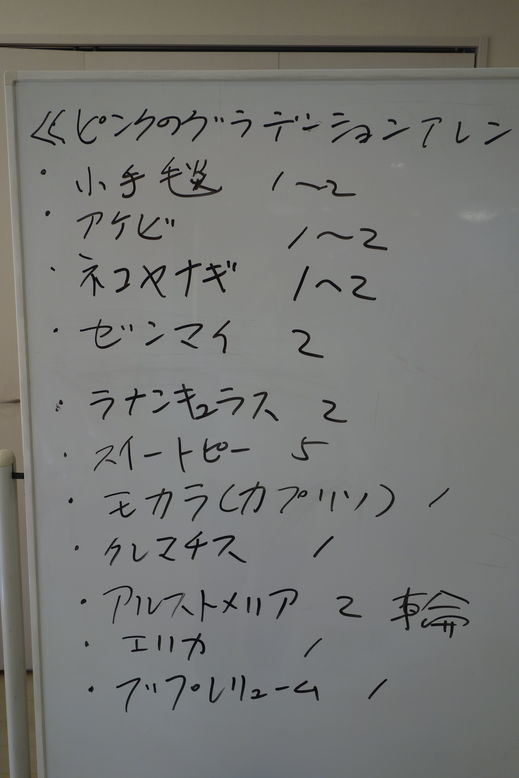 ≪ピンクのグラデーションアレン
・小手毬 1〜2
・アケビ 1〜2
・ネコヤナギ 1〜2
・ゼンマイ 2
・ラナンキュラス 2
・スイートピー 5
・モカラ(カプリソ) 1
・クレマチス 1
・アルストメリア 2輪
・エリカ 1
・ブップレリューム 1